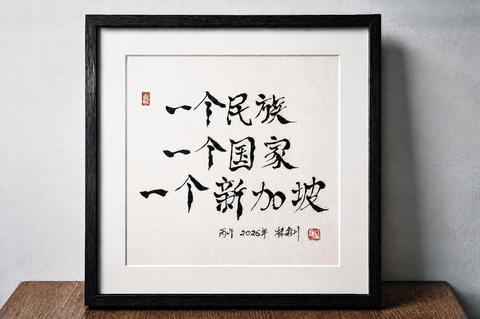 一个民族
一个国家
一个新加坡
丙午 2026年